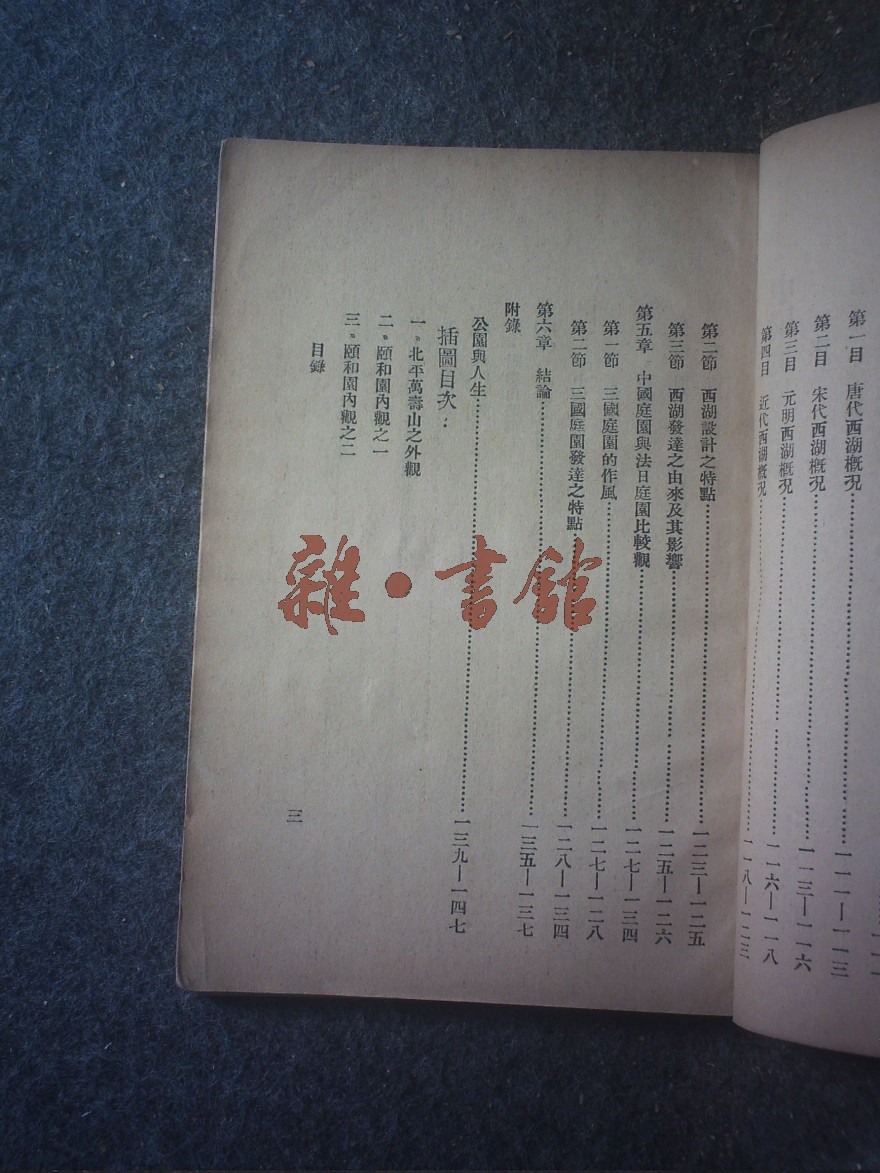 第一目　唐代西湖概況……一一一—一一三
第二目　宋代西湖概況……一一三—一一六
第三目　元明西湖概況……一一六—一一八
第四目　近代西湖概況……一一八—一二三
第二節　西湖設計之特點……一二三—一二五
第三節　西湖發達之由來及其影響……一二五—一二六
第五章　中國庭園與法日庭園比較觀……一二七—一三四
第一節　三國庭園的作風……一二七—一二八
第二節　三國庭園發達之特點……一二八—一三四
第六章　結論……一三五—一三七
附錄
公園與人生……一三九—一四七
插圖目次：
一，北平萬壽山之外觀
二，頤和園內觀之一
三，頤和園內觀之二
目錄
三
雜·書館